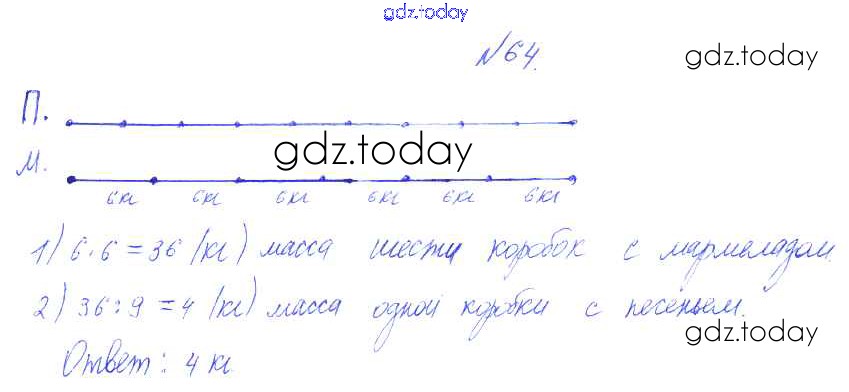 gdz.today
№64.
gdz.today
П.
М.
gdz.today
6кг 6кг 6кг 6кг 6кг 6кг
1) 6·6=36 (кг) масса шести коробок с мармеладом.
2) 36:9=4 (кг) масса одной коробки с песеньем.
gdz.today
Ответ: 4 кг